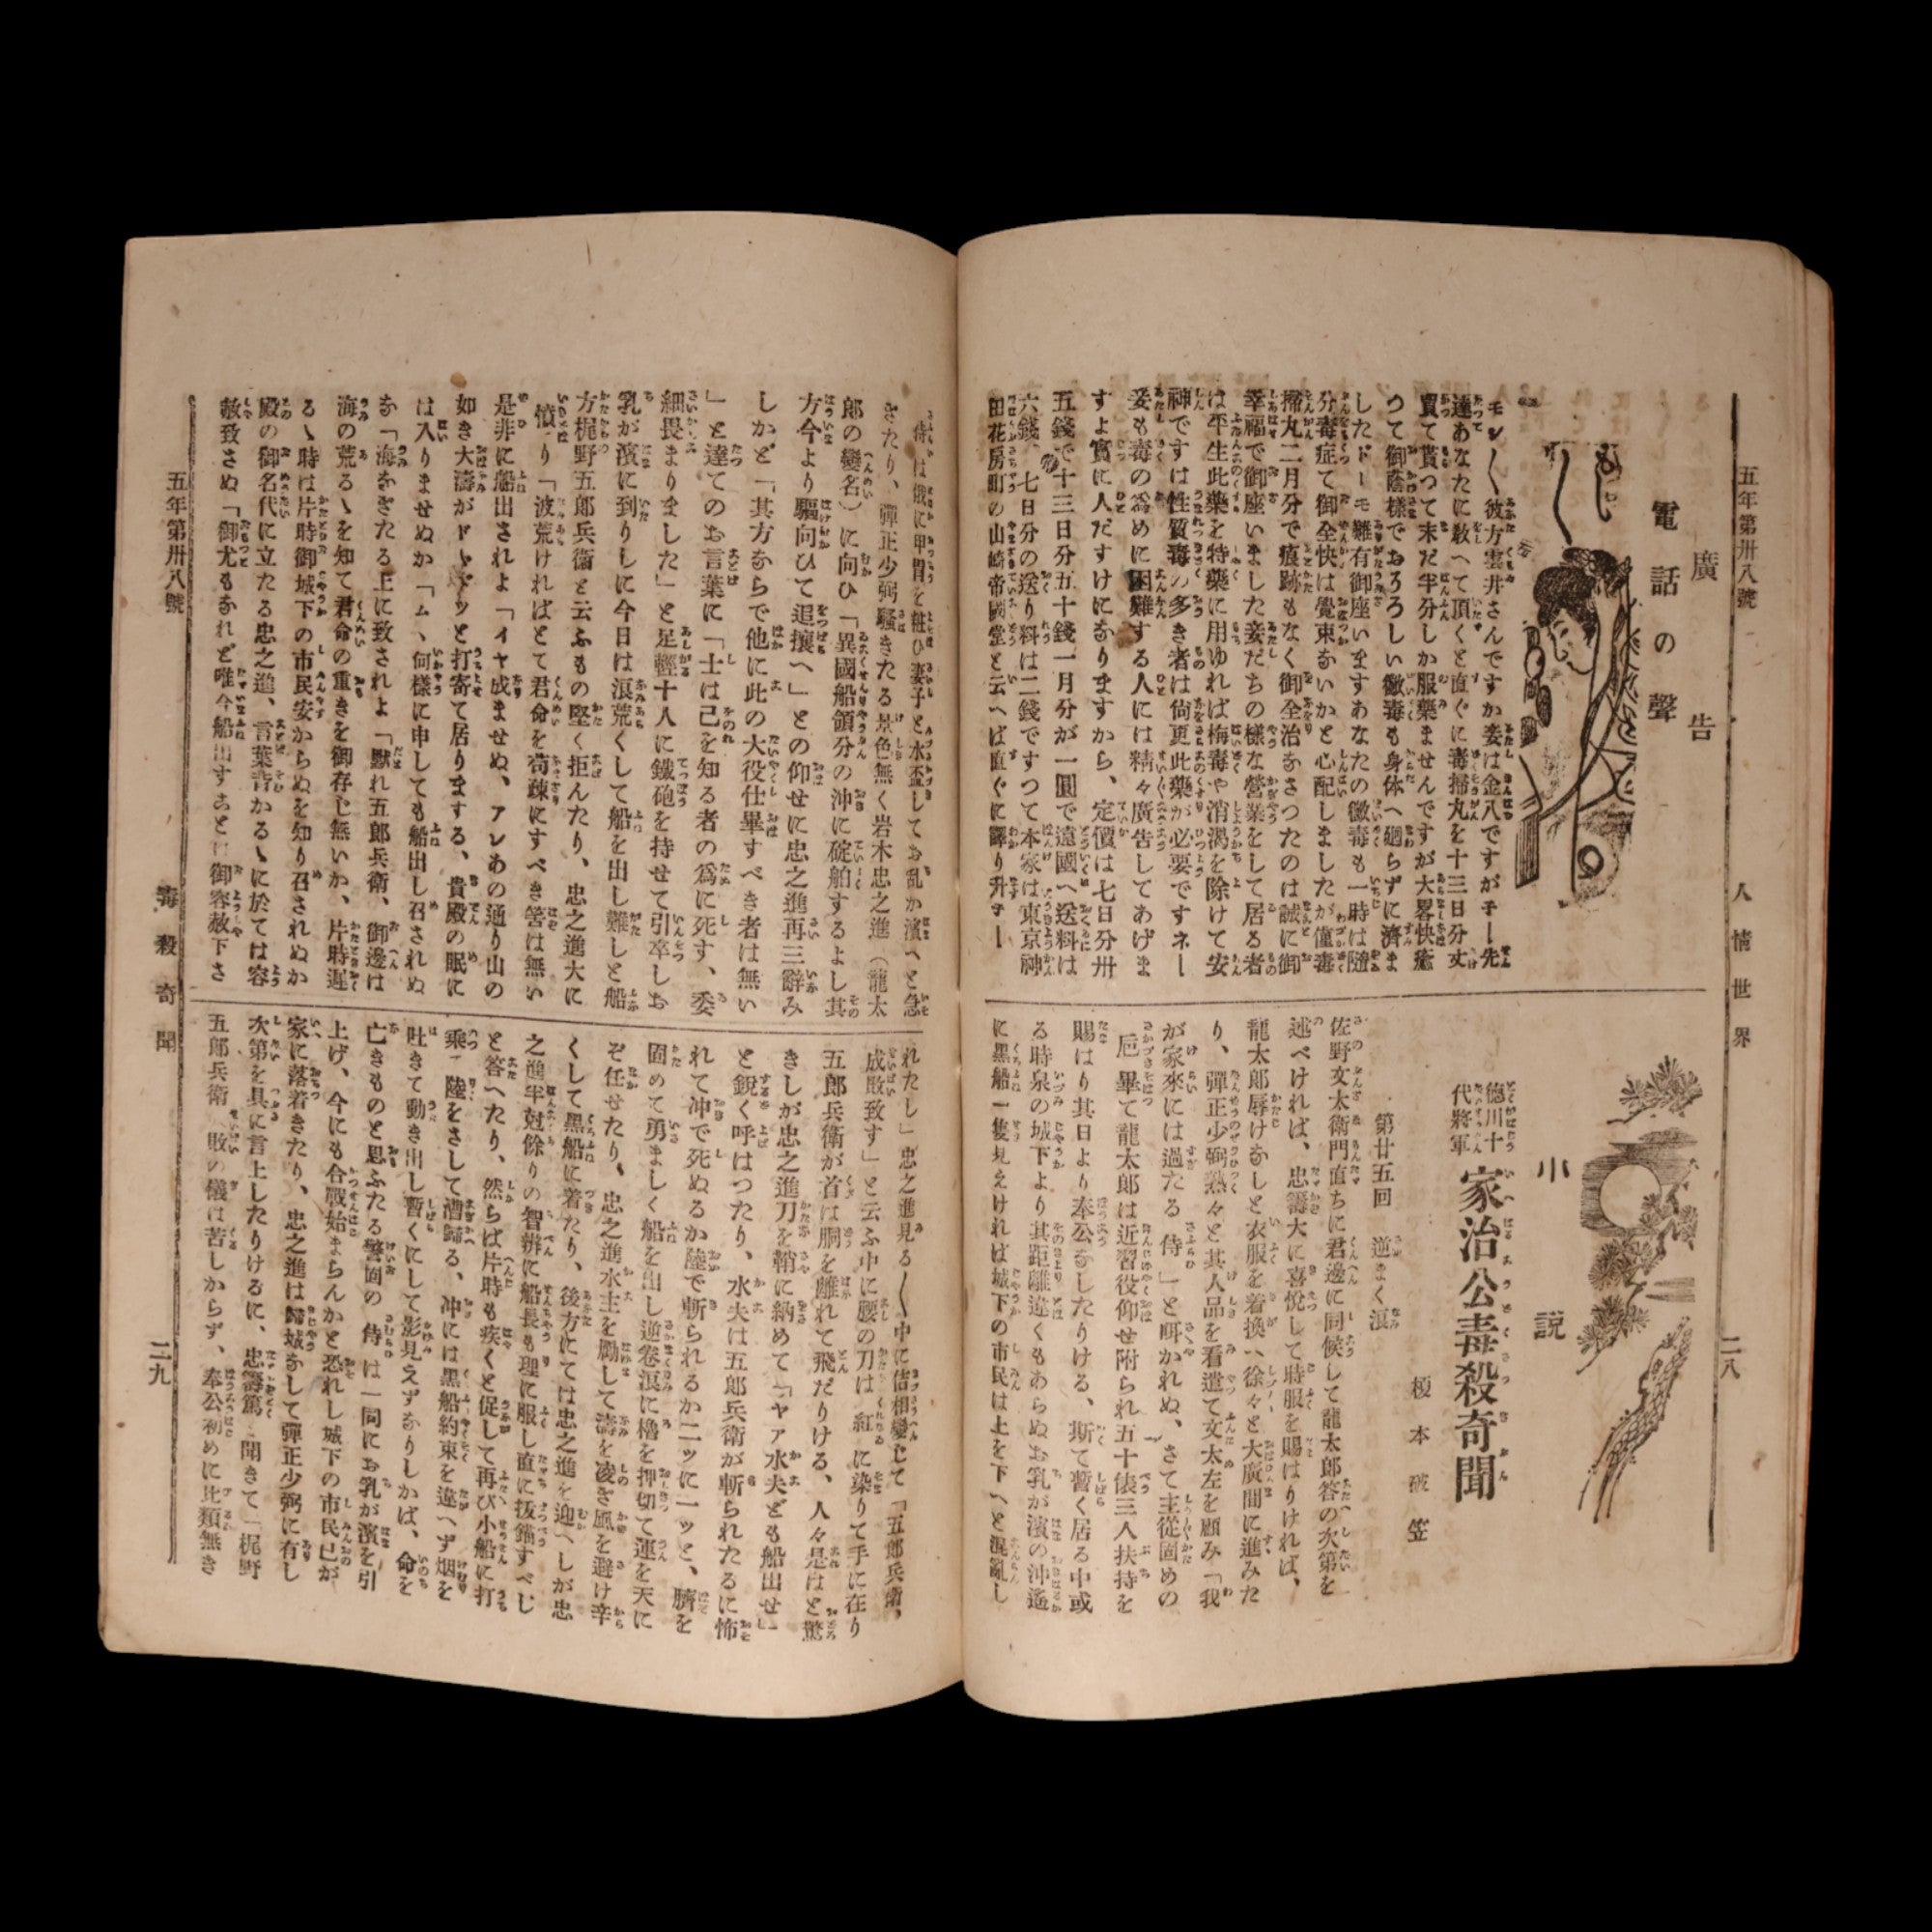 五年第卅八號
人情世界
二八
廣告
電話の聲
もし〱
モシ〱彼方雲井さんですか妾は金八ですがネー先
達あなたに敎へて頂くと直ぐに毒掃丸を十三日分丈
買て貰つて未だ半分しか服藥ませんですが大畧快癒
つて御蔭樣でおろろしい黴毒も身体へ廻らずに濟ま
したドーモ難有御座いますあなたの黴毒も一時は隨
分毒症て御全快は覺束ないかと心配しましたが僅毒
掃丸二月分で痕跡もなく御全治なさつたのは誠に御
幸福で御座いました妾だちの樣な營業をして居る者
は平生此藥を特藥に用ゆれば梅毒や消渇を除けて安
神ですは性質毒の多き者は尙更此藥が必要ですネー
妾も毒の爲めに困難する人には精々廣告してあげま
すよ實に人だすけになりますから、定價は七日分卅
五錢で十三日分五十錢一月分が一圓で遠國へ送料は
六錢、七日分の送り料は二錢ですつて本家は東京神
田花房町の山崎帝國堂と云へば直ぐに譯り升ネー
小說
德川十代將軍
家治公毒殺奇聞
榎本破笠
第廿五回 逆まく浪
佐野文太衛門直ちに君邊に同候して龍太郎答の次第を
述べければ、忠籌大に喜悅して時服を賜はりければ、
龍太郎辱けなしと衣服を着換へ徐々と大廣間に進みた
り、彈正少弼熟々と其人品を看遣て文太左を顧み「我
が家來には過たる侍」と呟かれぬ、さて主從固めの
巵畢て龍太郎は近習役仰せ附られ五十俵三人扶持を
賜はり其日より奉公なしたりける、斯て暫く居る中或
る時泉の城下より其距離違くもあらぬお乳が濱の沖遙
に黑船一隻見えければ城下の市民は上を下へと混亂し
侍は俄に甲冑を粧ひ妻子と水盃してお乱か濱へと急
きたり、彈正少弼騷きたる景色無く岩木忠之進（龍太
郎の變名）に向ひ「異國船領分の沖に碇舶するよし其
方今より驅向ひて追攘へ」との仰せに忠之進再三辭み
しかど「其方ならで他に此の大役仕畢すべき者は無い
」と達てのお言葉に「士は己を知る者の爲に死す、委
細畏まりました」と足輕十人に鐵砲を持せて引卒しお
乳が濱に到りしに今日は浪荒くして船を出し難しと船
方梶野五郎兵衞と云ふもの堅く拒んたり、忠之進大に
憤り「波荒ければとて君命を苟疎にすべき筈は無い
是非に船出されよ「イヤ成ませぬ、アレあの通り山の
如き大濤がドヽドツと打寄て居りまする、貴殿の眠に
は入りませぬか「ムヽ何樣に申しても船出し召されぬ
な「海なきたる上に致されよ「默れ五郎兵衞、御邊は
海の荒るゝを知て君命の重きを御存じ無いか、片時遲
るゝ時は片時御城下の市民安からぬを知り召されぬか
殿の御名代に立たる忠之進、言葉背かるゝに於ては容
赦致さぬ「御尤もなれど唯今船出すことは御容赦下さ
れたし」忠之進見る〱中に佶相變じて「五郎兵衞、
成敗致す」と云ふ中に腰の刀は紅に染りて手に在り
五郎兵衞が首は胴を離れて飛だりける、人々是はと驚
きしが忠之進刀を鞘に納めて「ヤア水夫ども船出せ」
と銳く呼はつたり、水夫は五郎兵衞が斬られたるに怖
れて沖で死ぬるか陸で斬られるか二ツに一ツと、臍を
固めて勇ましく船を出し逆卷浪に櫓を押切て運を天に
ぞ任せたり、忠之進水主を勵して濤を凌ぎ風を避け辛
くして黑船に着たり、後方にては忠之進を迎へしが忠
之進半尅餘りの智辨に船長も理に服し直に拔錨すべし
と答へたり、然らば片時も疾くと促して再び小船に打
乘り陸をさして漕歸る、沖には黑船約束を違へず烟を
吐きて動き出し暫くにして影見えずなりしかば、命を
亡きものと思ふたる警固の侍は一同にお乳が濱を引
上げ、今にも合戰始まらんかと恐れし城下の市民己が
家に落着きたり、忠之進は歸城なして彈正少弼に有し
次第を具に言上したりけるに、忠籌篤と聞きて「梶野
五郎兵衞成敗の儀は苦しからず、奉公初めに比類無き
五年第卅八號
毒殺奇聞
二九